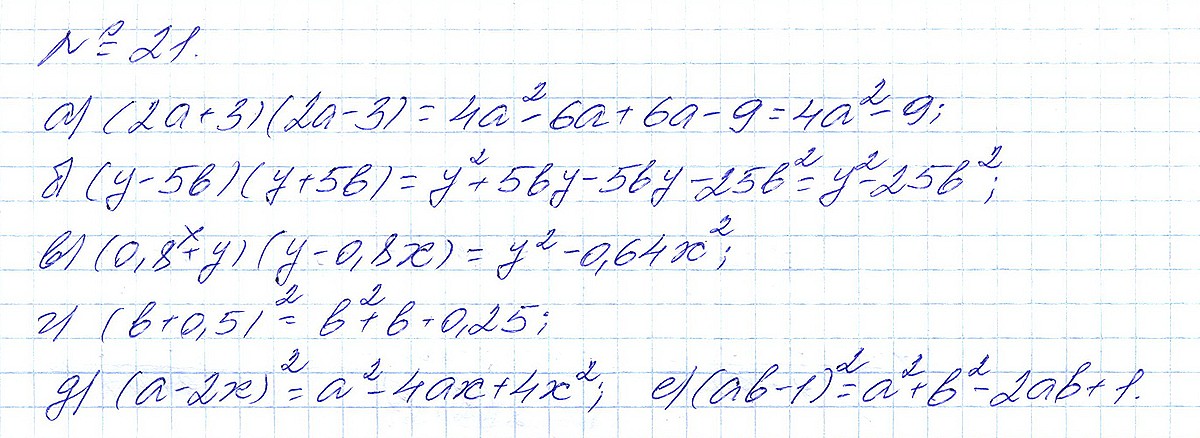 № 21.
а) (2a+3)(2a-3) = 4a²-6a+6a-9=4a²-9;
б) (y-5b)(y+5b) = y²+5by-5by-25b²=y²-25b²;
в) (0,8x+y)(y-0,8x) = y²-0,64x²;
г) (b+0,5)²= b²+b+0,25;
д) (a-2x)²=a²-4ax+4x²; е) (ab-1)²=a²+b²-2ab+1.